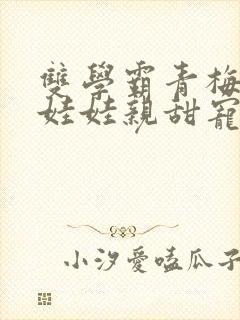 雙學霸青梅
娃娃親甜寵
小汐愛嗑瓜子